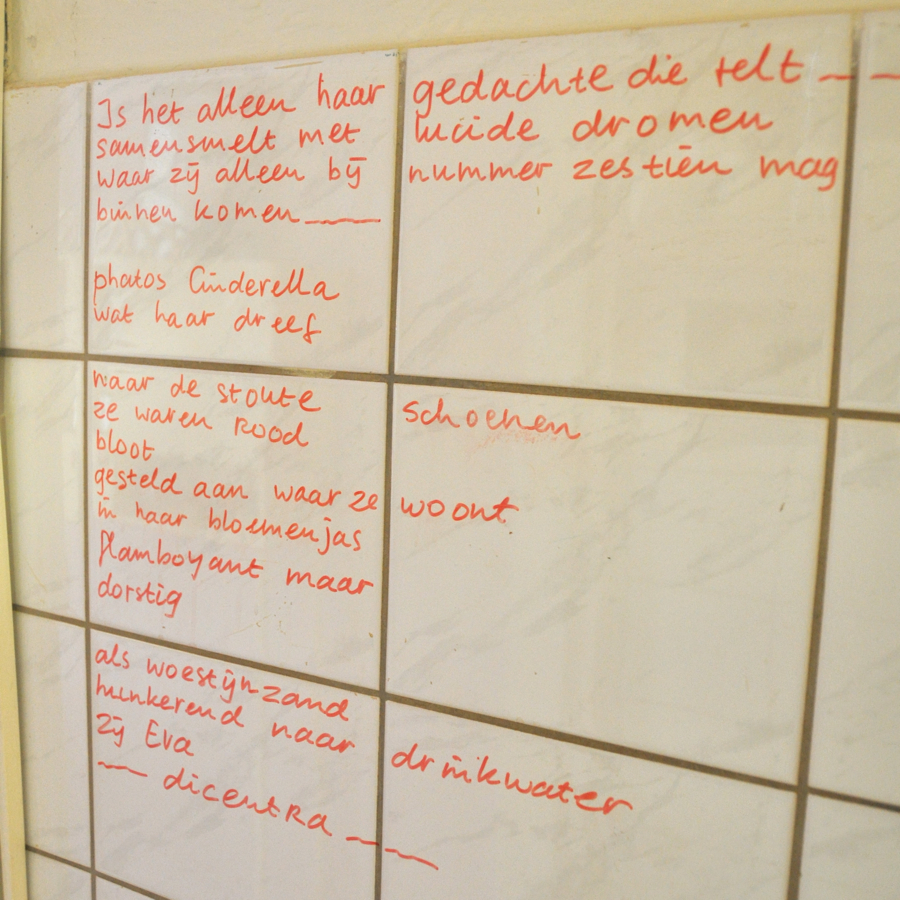 Is het alleen haar gedachte die telt — —
samensmelt met lucide dromen
waar zij alleen bij nummer zestien mag
binnen komen ——
phatos Cinderella
wat haar dreef
naar de stoute schoenen
ze waren rood
bloot
gesteld aan waar ze woont
in haar bloemenjas
flamboyant maar
dorstig
als woestijnzand
hunkerend naar drinkwater
Zij Eva
— dicentra — —